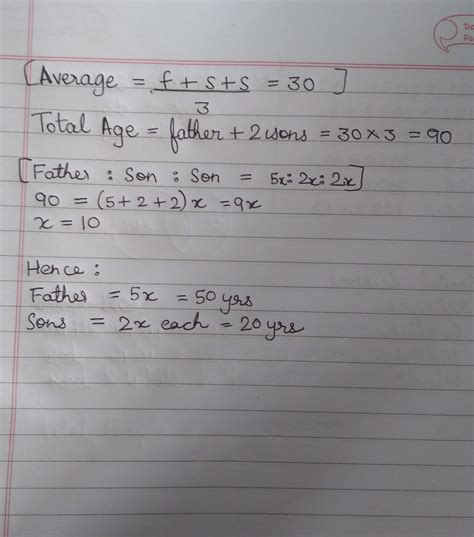 [Average = f + s + s / 3 = 30 ]
Total Age = father + 2 sons = 30 × 3 = 90
[Father : Son : Son = 5x : 2x : 2x]
90 = (5+2+2) x = 9x
x = 10
Hence :
Father = 5x = 50 yrs
Sons = 2x each = 20 yrs